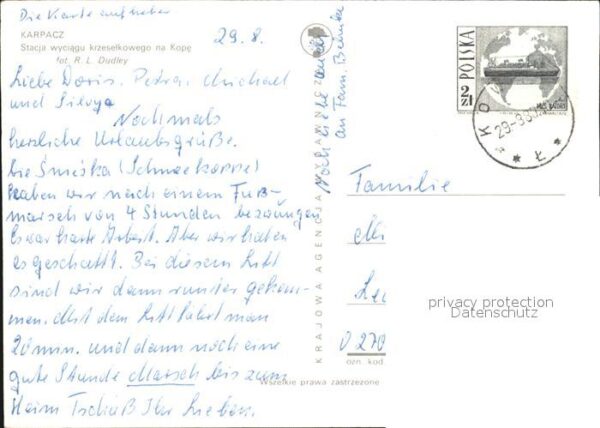 Die Karte aufheben
KARPACZ
Stacja wyciągu krzesełkowego na Kopę
fot. R. L. Dudley
29.8.
Liebe Doris. Petra. Michael
und Silvya
Nochmals
herzliche Urlaubsgrüße.
Die Śnieżka (Schneekoppe)
haben wir nach einem Fuß-
marsch von 4 Stunden bezwungen
Es war harte Arbeit. Aber wir haben
es geschafft. Bei diesem Lift
sind wir dann runter gekom-
men. Mit dem Lift fährt man
20 min. und dann noch eine
gute Stunde Marsch bis zum
Heim Tschüß Ihr Lieben.
Noch liebe
an Fam.
KRAJOWA AGENCJA WYDAWNICZA
Wszelkie prawa zastrzeżone
POLSKA
2 ZŁ
KOW
Familie
Mi
Lei
0270
ozn. kod
privacy protection
Datenschutz